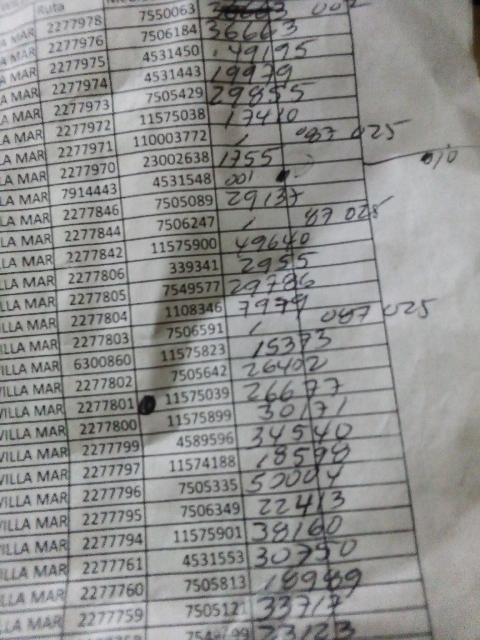 Ruta
LA MAR 2277978 7550063
LA MAR 2277976 7506184 36663
LA MAR 2277975 4531450 49195
LA MAR 2277974 4531443 19979
LA MAR 2277973 7505429 29855
LA MAR 2277972 11575038 17410
LA MAR 2277971 110003772 / 087 025
LA MAR 2277970 23002638 1755
LA MAR 7914443 4531548 001
LA MAR 2277846 7505089 29137
LA MAR 2277844 7506247 / 87 025
LA MAR 2277842 11575900 49640
LA MAR 2277806 339341 2955
LA MAR 2277805 7549577 29786
LA MAR 2277804 1108346 7979
VILLA MAR 2277803 7506591 / 087 025
VILLA MAR 6300860 11575823 15373
VILLA MAR 2277802 7505642 26402
VILLA MAR 2277801 11575039 26677
VILLA MAR 2277800 11575899 30171
VILLA MAR 2277799 4589596 34540
VILLA MAR 2277797 11574188 18598
VILLA MAR 2277796 7505335
VILLA MAR 2277795 7506349 22413
VILLA MAR 2277794 11575901 38160
VILLA MAR 2277761 4531553 30750
VILLA MAR 2277760 7505813 18989
LA MAR 2277759 7505121 33717
23123